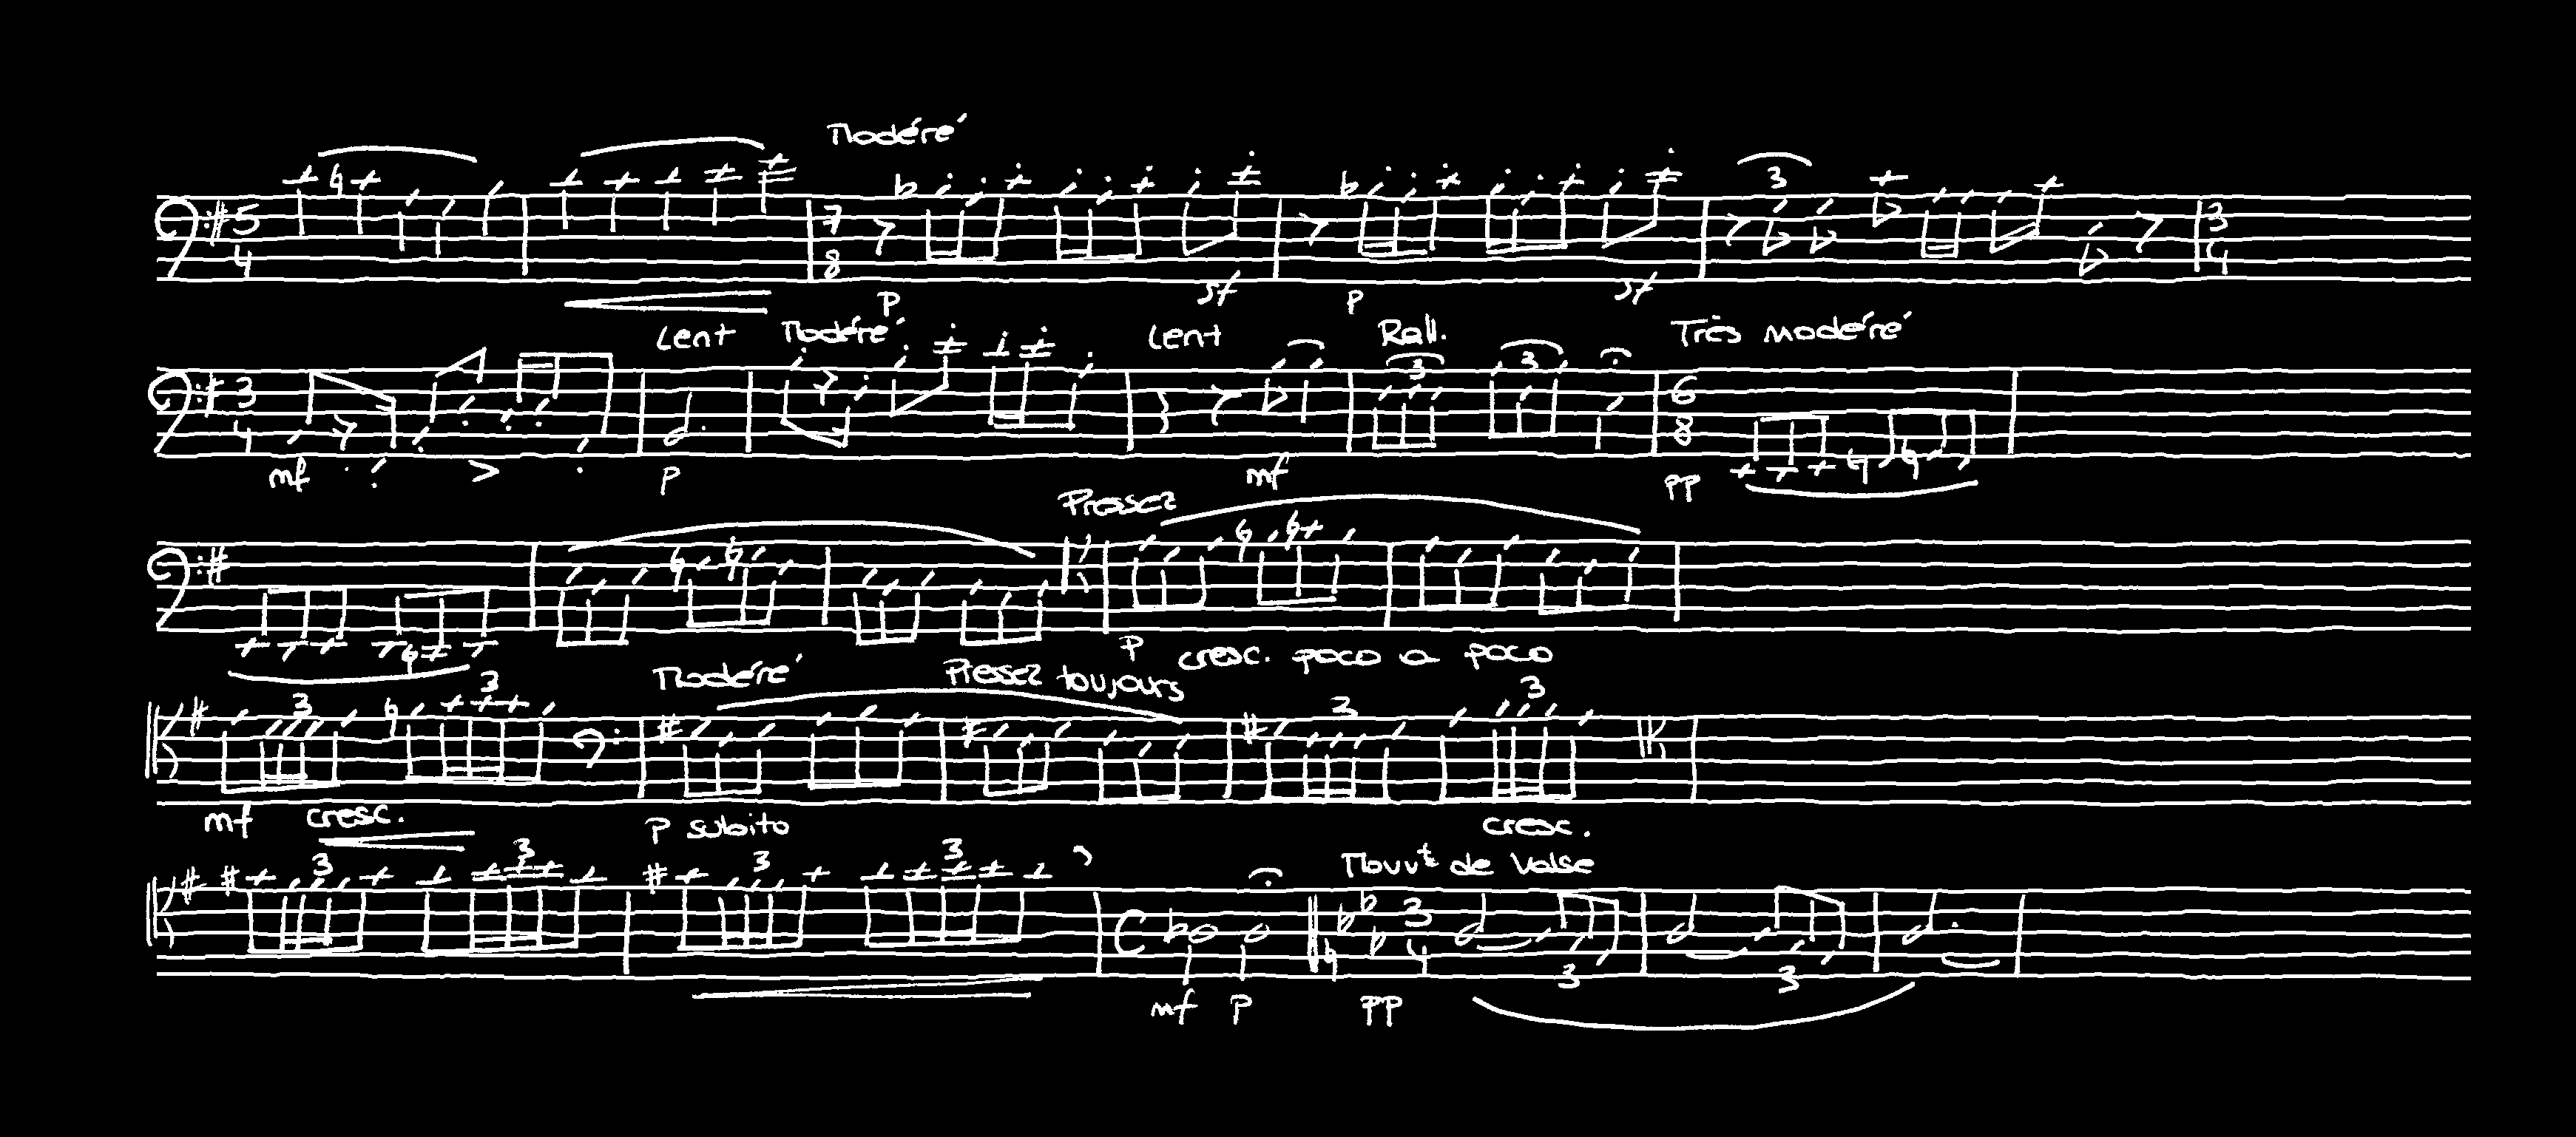 Modéré
5 4 7 8 3 3 4
p sf p sf
Lent Modéré Lent Rall. Très modéré
3 4 3 3 6 8
mf p mf pp
Pressez
p cresc. poco a poco
Modéré Pressez toujours
3 3 3 3
mf cresc. p subito cresc.
Mouvt de Valse
3 3 3 3 C 3 4
3 3
mf p pp